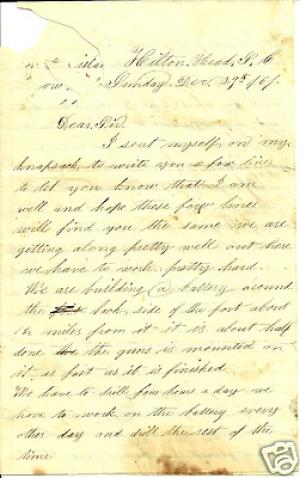 Hilton, Head, S, C
Sunday Dec. 29th /61.
Dear Sir.
I seat myself, on my
knapsack, to write you a few lines
to let you know that I am
well and hope these few lines
will find you the same we are
getting along pretty well out here
we have to work pretty hard.
We are building a battery around
the back, side of the fort about
1½ miles from it it is about half
done the guns is mounted on
it, as fast as it is finished
We have to drill four hours a day we
have to work on the battery every
other day and drill the rest of the
time